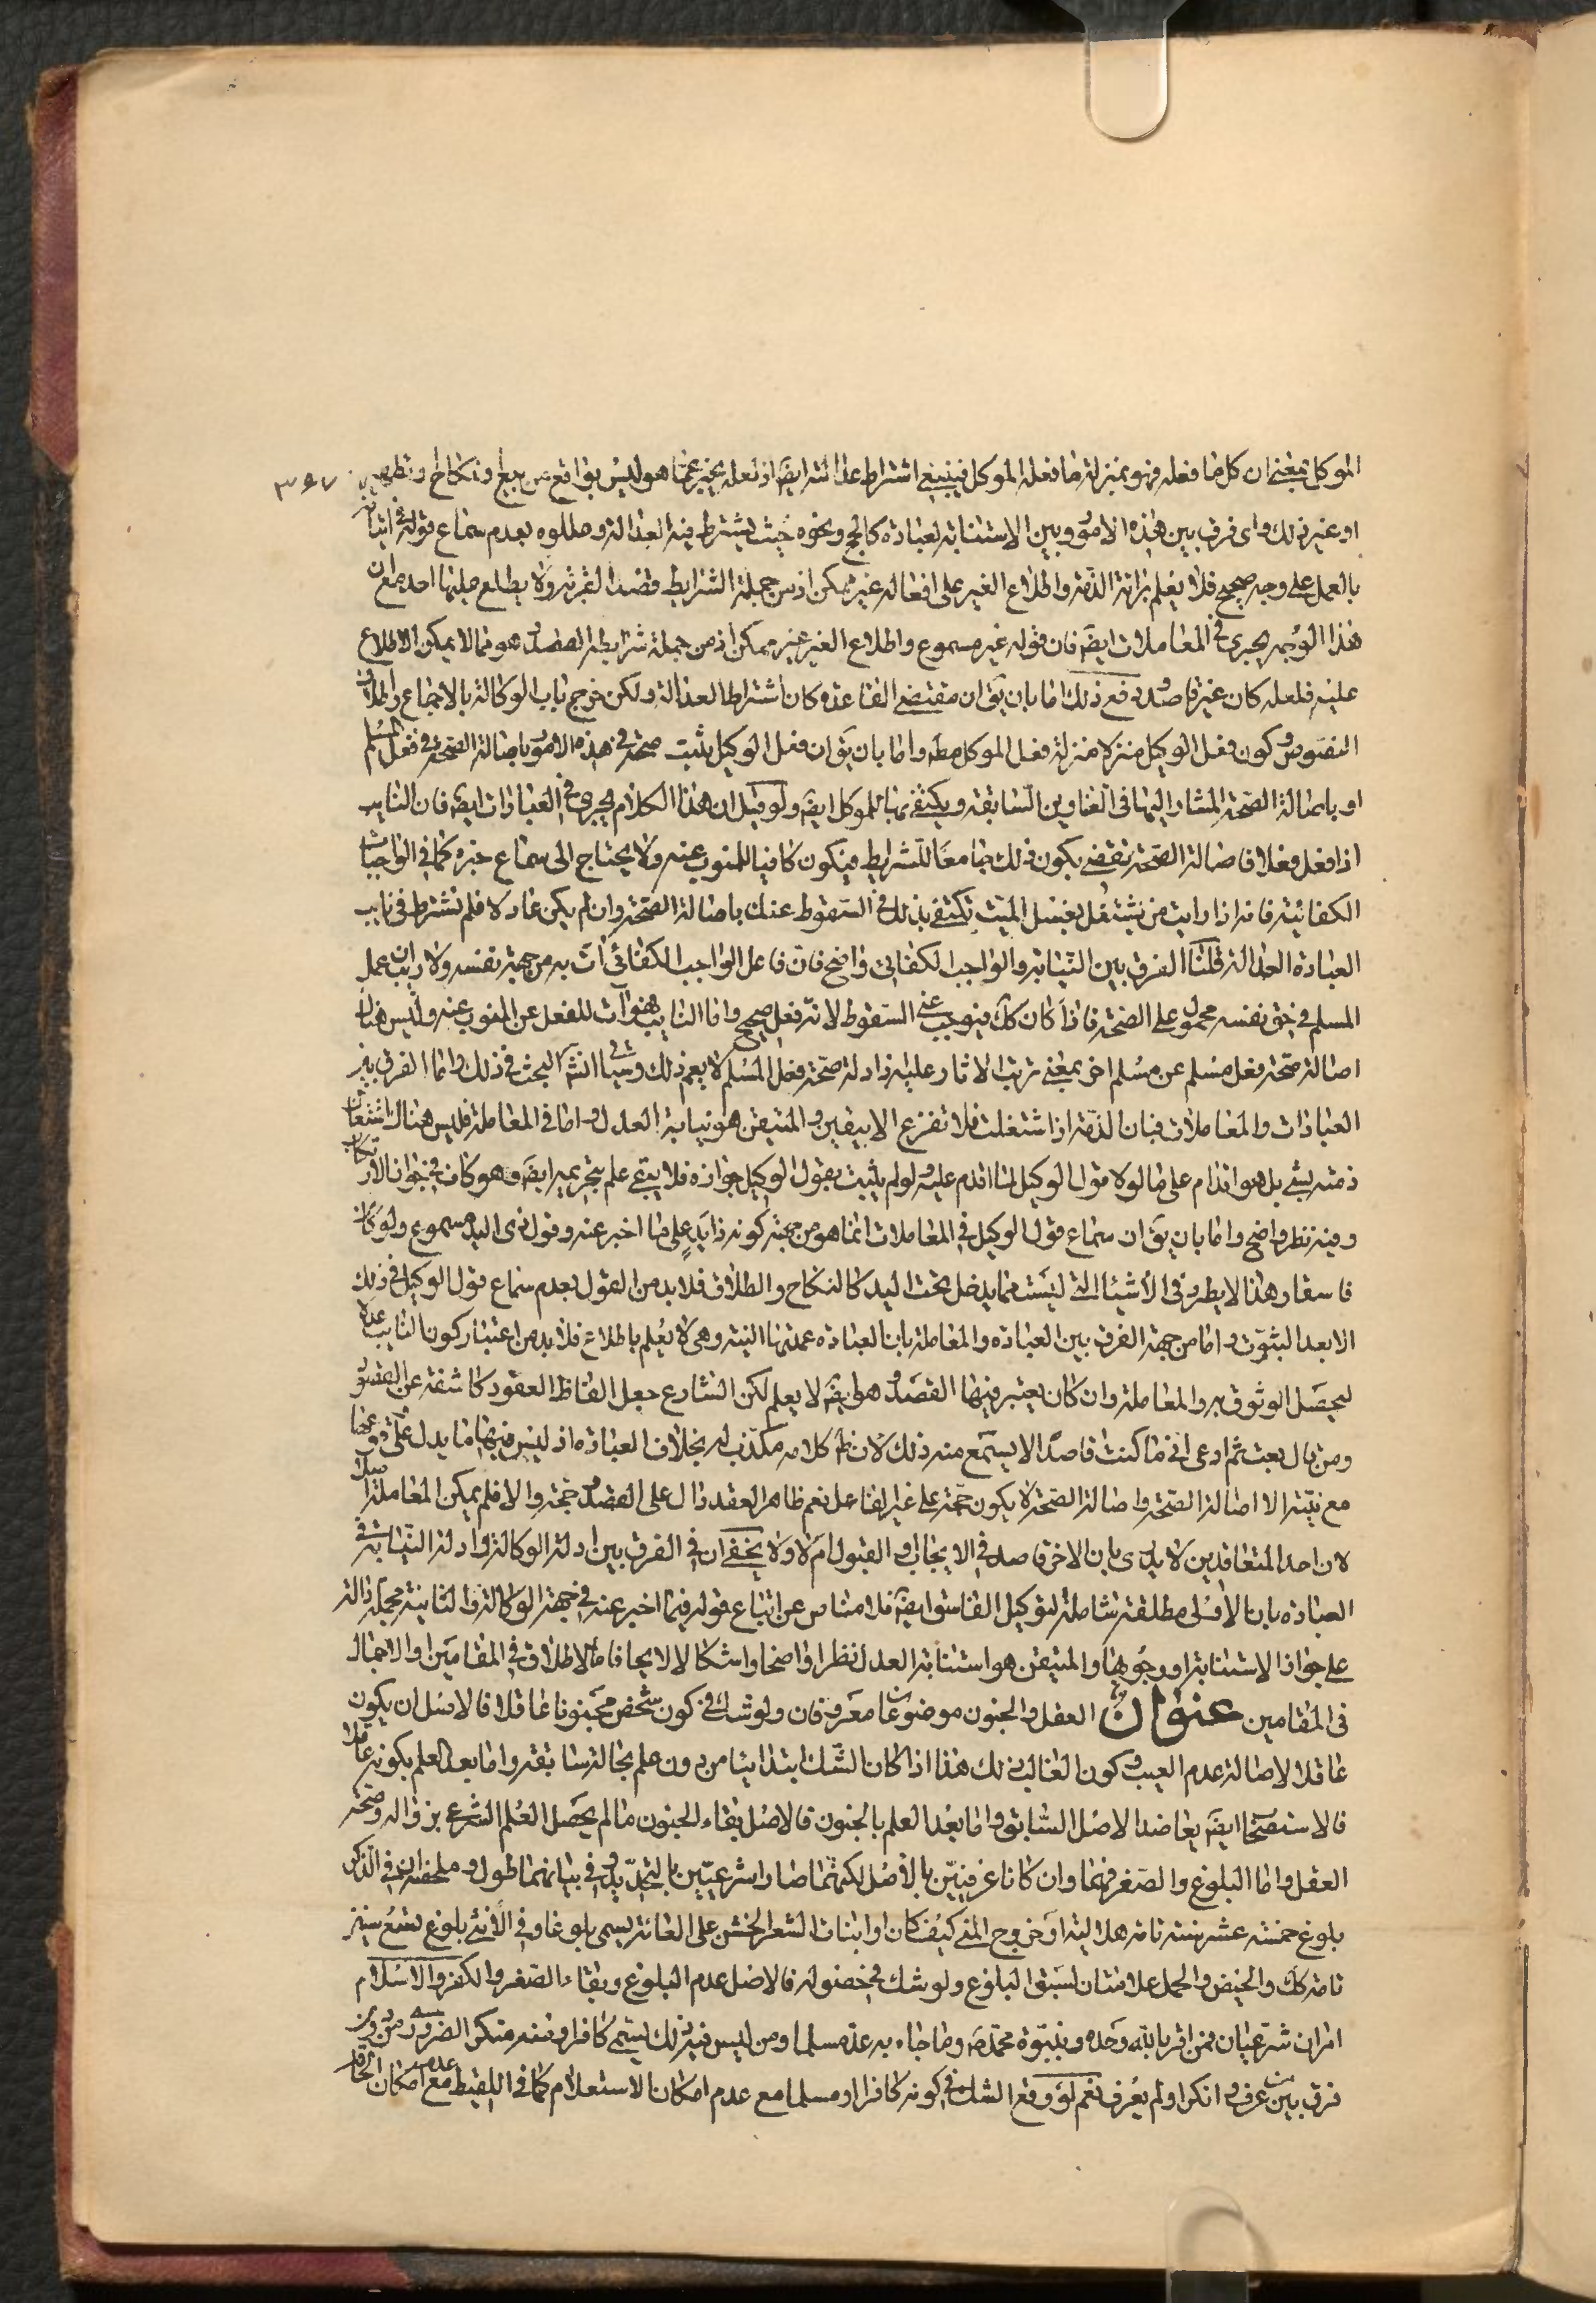 الموكل بمعنى ان كل ما فعله فهو بمنزلة ما فعله الموكل فينبغي اشتراط عدالته ايضَ اذ لعله يخبر عمّا هو ليس بواقع من بيع ونكاح وتطهير ٣٦٧
او غير ذلك واى فرق بين هذه الامور وبين الاستنابة لعبادة كالحج ونحوه حيث يشترط فيه العدالة وعللوه بعدم سماع قوله في اتيانه
بالعمل على وجه صحيح فلا يعلم برائة الذمّة واطلاع الغير على افعاله غير ممكن اذ من جملة الشرايط قصد القربة ولا يطلع عليها احد مع ان
هذا الوجه يجرى في المعاملات ايضَ فان قوله غير مسموع واطلاع الغير غير ممكن اذ من جملة شرايطه القصد وهو مما لا يمكن الاطلاع
عليه فلعله كان غير قاصد ويدفع ذلك اما بان يقَ ان مقتضى القاعدة كان اشتراط العدالة ولكن خرج باب الوكالة بالاجماع واطلاق
النصوص وكون فعل الوكيل منزلا منزلة فعل الموكل مطَ واما بان يقَ ان فعل الوكيل يثبت صحته في هذه الامور باصالة الصّحة في فعل المسلم
او باصالة الصّحة المشار اليها في العناوين السّابقة ويكتفى بها للموكل ايضَ ولو قيل ان هذا الكلام يجرى في العبادات ايضَ فان النايب
اذا فعل فعلا فاصالة الصّحة تقضى بكون ذلك جامعا للشرايط فيكون كافيا للمنوب عنه ولا يحتاج الى سماع خبره كما في الواجبات
الكفائية فانه اذا رايت من يشتغل بغسل الميّت تكتفى بذلك في السّقوط عنك باصالة الصّحة وان لم يكن عادلا فلم تشترط في نايب
العبادة العدالة قلنا الفرق بين النّيابة والواجب الكفائي واضح فانّ فاعل الواجب الكفائي اتٍ به من جهة نفسه ولا ريب ان عمل
المسلم في حق نفسه محمول على الصّحة فاذا كان كك فيوجب عنى السّقوط لانّه فعل صحيح واما النايب فهو آت للفعل عن المنوب عنه وليس هناك
اصالة صحّة فعل مسلم عن مسلم اخر بمعنى ترتب الاثار عليه وادلة صحّة فعل المسلم لا يعم ذلك وسياتى انشَ البحث في ذلك واما الفرق بين
العبادات والمعاملات فبان الذمّة اذا اشتغلت فلا تفرغ الا بيقين والمتيقن هو نيابة العدل واما في المعاملة فليس هناك اشتغال
ذمته بشئ بل هو اقدام على ما لولا قول الوكيل لما اقدم عليه ولو لم يثبت بقول الوكيل جوازه فلا يبقى علم بتحريمه ايضَ وهو كاف في جواز الارتكاب
وفيه نظر واضح واما بان يقَ ان سماع قول الوكيل في المعاملات انما هو من جهة كونه ذا يدٍ على ما اخبر عنه وقول ذى اليد مسموع ولو كان
فاسقا وهذا لا يطرد في الأشياء التي ليست مما يدخل تحت اليد كالنكاح والطلاق فلا بد من القول بعدم سماع قول الوكيل في ذلك
الا بعد الثبوت واما من جهة الفرق بين العبادة والمعاملة بان العبادة عمدتها النية وهي لا يُعلم باطلاع فلا بد من اعتبار كون النايب عدلا
ليحصل الوثوق به والمعاملة وان كان يعتبر فيها القصد وهو ايضَ لا يعلم لكن الشارع جعل الفاظ العقود كاشفة عن القصود
ومن قال بعت ثم ادعى انّى ما كنت قاصدًا لا يسمع منه ذلك لان ظَ كلامه مكذب له بخلاف العبادة اذ ليس فيها ما يدل على وقوعها
مع نيّته الا اصالة الصّحة واصالة الصّحة لا يكون حجّة على غير الفاعل نعم ظاهر العقد دال على القصد وحجّة والا فلم يمكن المعاملة اصلا
لان احد المتعاقدين لا يدرى بان الاخر قاصد في الايجاب والقبول ام لا ولا يخفى ان في الفرق بين ادلة الوكالة وادلة النّيابة في
العبادة بان الأولى مطلقة شاملة لتوكيل الفاسق ايضَ فلا مناص عن اتباع قوله فيما اخبر عنه في جهة الوكالة والثانية مجملة دالة
على جواز الاستنابة او وجوبها والمتيقن هو استنابة العدل نظرا واضحا واشكالا لايحا فاما الاطلاق في المقامين او الاجمال
في المقامين عنوان العقل والجنون موضوعان معروفان ولو شك في كون شخص مجنونا او عاقلا فالاصل ان يكون
عاقلا لاصالة عدم العيب وكون الغالب ذلك هذا اذا كان الشك ابتدائيا من دون علم بحالة سابقة واما بعد العلم بكونه عاقلا
فالاستصحاب ايضَ يعاضد الاصل السّابق واما بعد العلم بالجنون فالاصل بقاء الجنون ما لم يحصل العلم الشرعي بزواله وصحّة
العقل واما البلوغ والصّغر فهما وان كانا عرفيّين بالأصل لكنهما صارا شرعيّين بالتحديد وفي بيانهما طول وملخصه ان في الذكر
بلوغ خمسة عشر سنة تامة هلالية او خروج المنى كيف كان او انبات الشعر الخشن على العانة يسمى بلوغا وفي الأنثى بلوغ تسع سنين
تامة كك والحيض والحمل علامتان لسبق البلوغ ولو شك في حصوله فالاصل عدم البلوغ وبقاء الصّغر والكفر والاسلام
امران شرعيان فمن اقر بالله وحده وبنبوّة محمّدص وما جاء به عدّ مسلما ومن ليس فيه ذلك يسمّى كافرا ومنه منكر الضرورى من دون
فرق بين من عرف وانكر او لم يعرف نعم لو وقع الشك في كونه كافرا او مسلما مع عدم امكان الاستعلام كما في اللقيط مع عدم امكان الحاقه